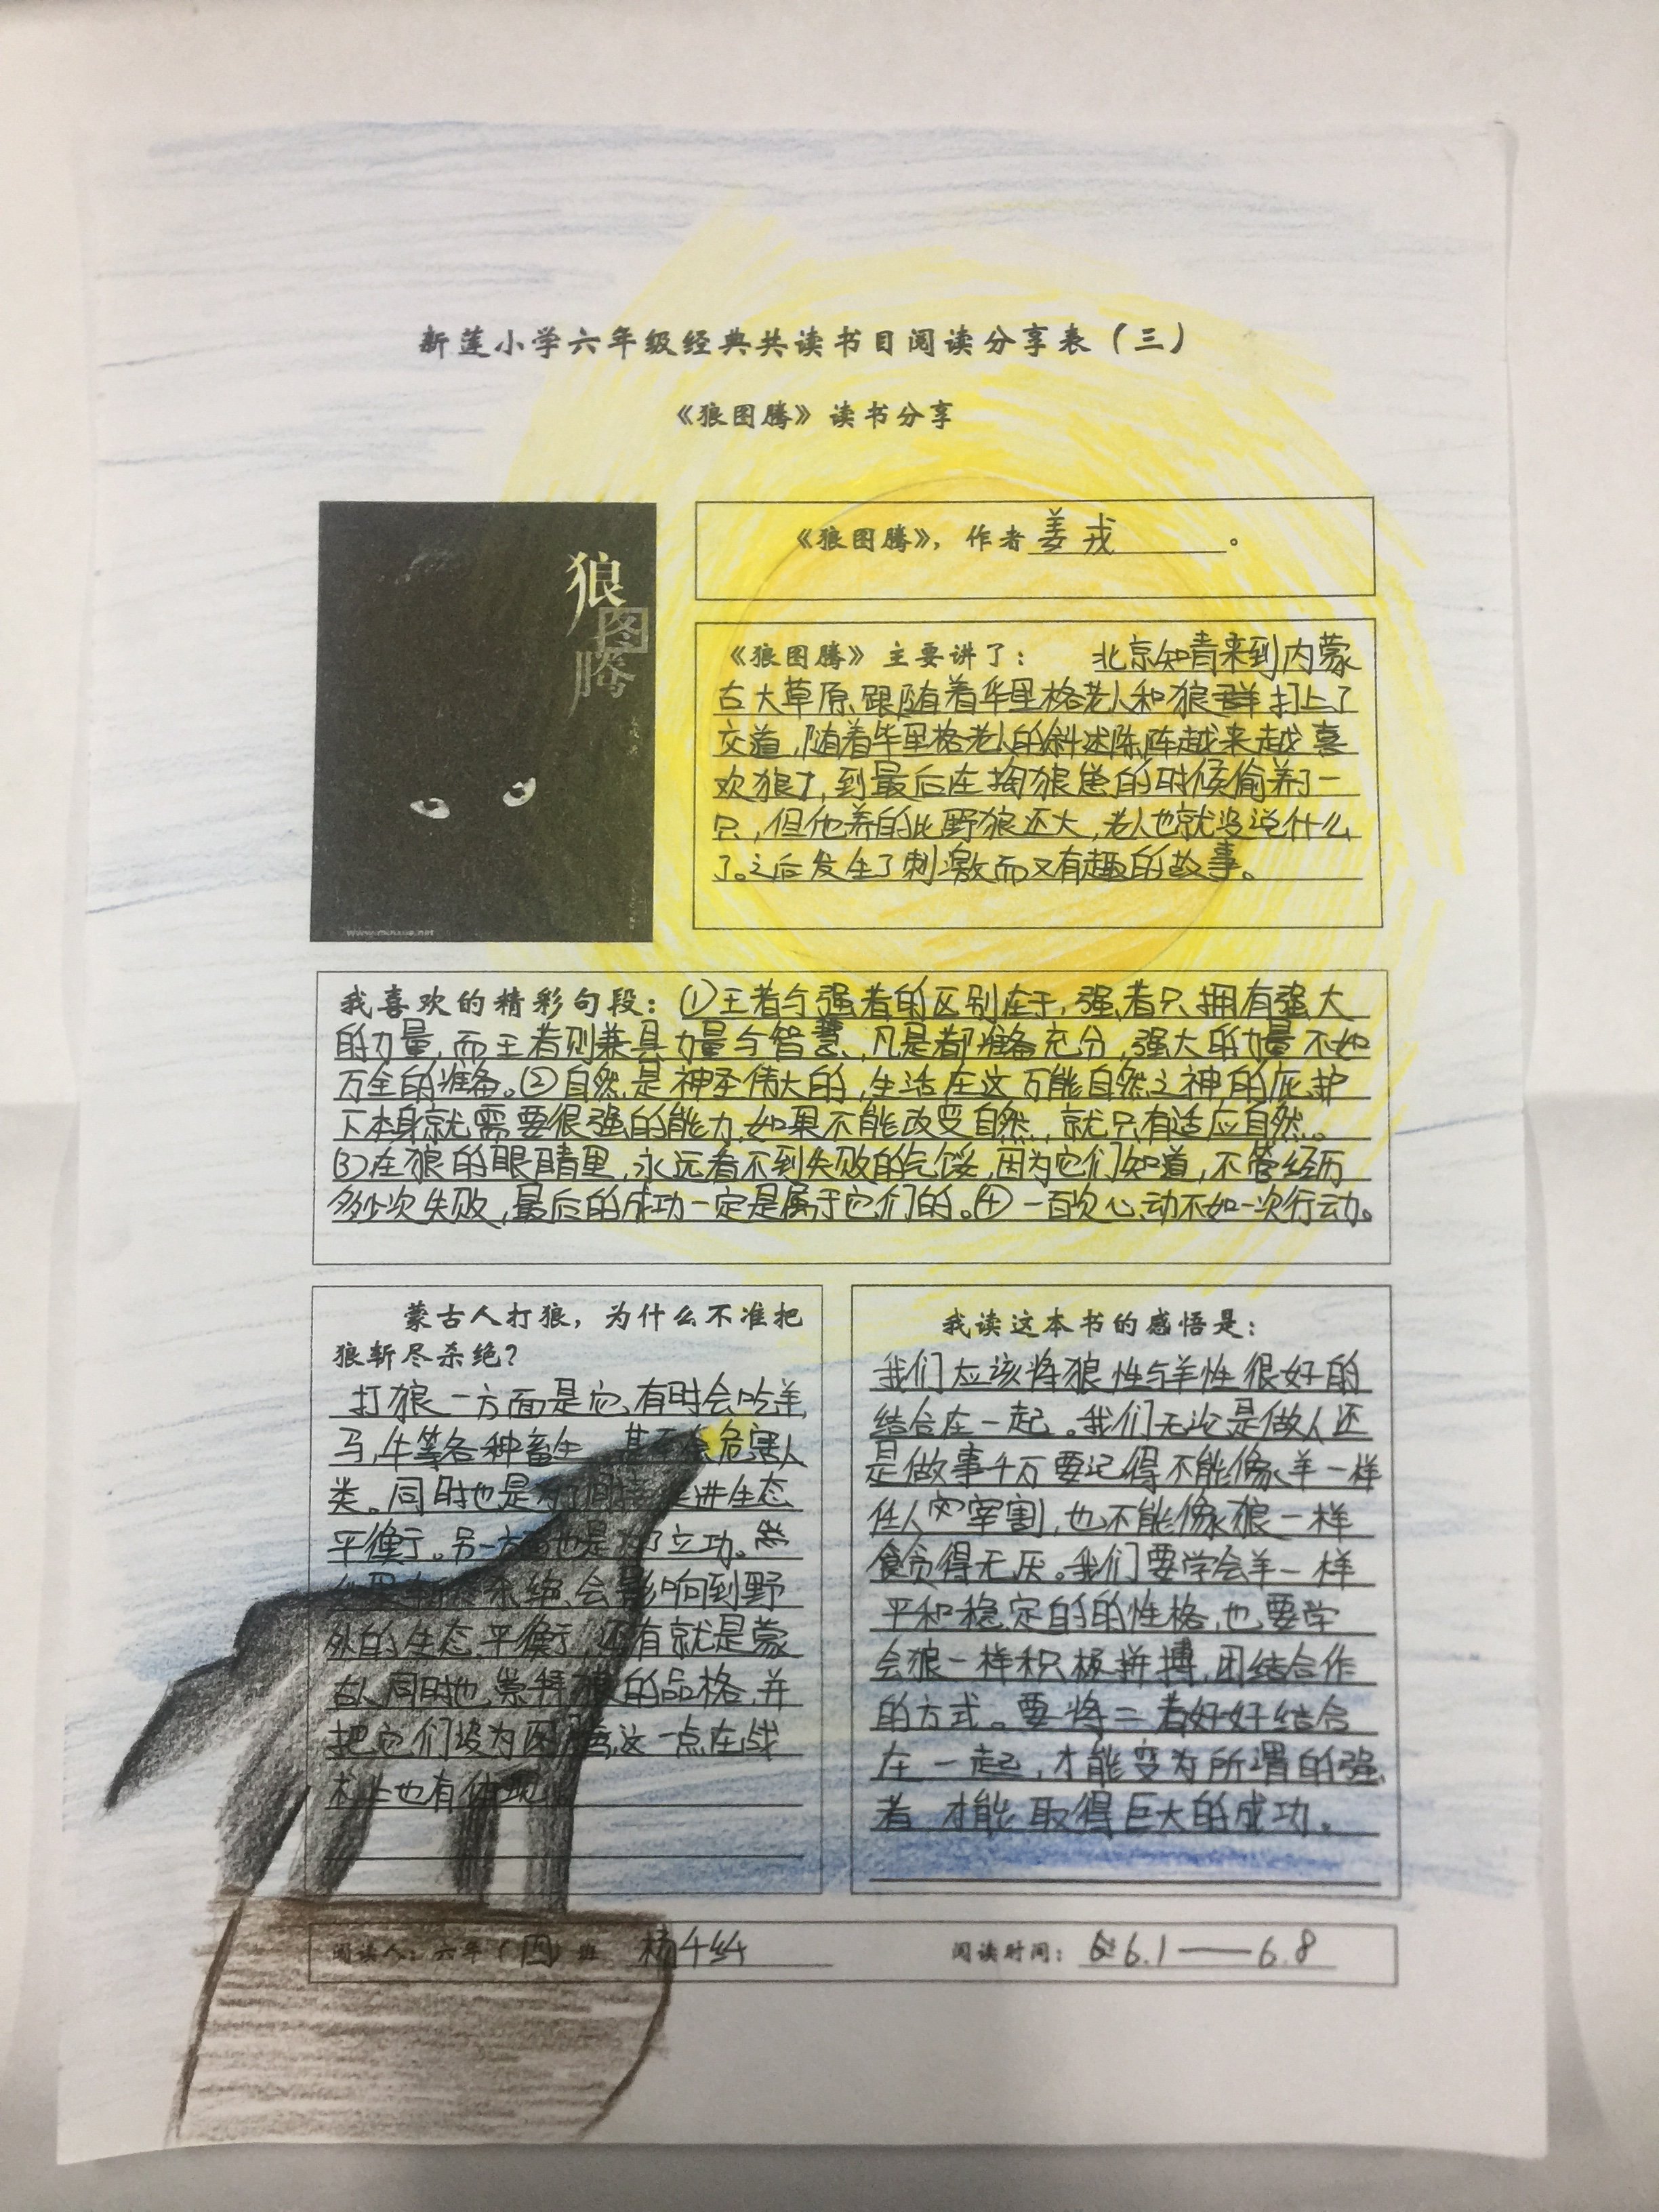 新莲小学六年级经典共读书目阅读分享表（三）
《狼图腾》读书分享
狼
图
腾
《狼图腾》，作者 姜戎 。
《狼图腾》主要讲了： 北京知青来到内蒙
古大草原,跟随着毕里格老人和狼群打上了
交道,随着毕里格老人的 陈阵越来越喜
欢狼了,到最后在掏狼崽的时候偷养了一
只,但他养的比野狼还大,老人也就没说什么
了。之后发生了刺激而又有趣的故事。
我喜欢的精彩句段：①王者与强者的区别在于,强者只拥有强大
的力量,而王者则兼具力量与智慧,凡是都准备充分,强大的力量不如
万全的准备。②自然是神圣伟大的,生活在这万能自然之神的庇护
下本身就需要很强的能力,如果不能改变自然,就只有适应自然。
③在狼的眼睛里,永远看不到失败的气馁,因为它们知道,不管经历
多少次失败,最后的成功一定是属于它们的。④一百次心动不如一次行动。
蒙古人打狼，为什么不准把
狼斩尽杀绝？
打狼一方面是它有时会吃羊,
马,牛等各种畜生,甚至会危害人
类。同时也是为了 促进生态
平衡。另一方面也是为了立功。然
如果斩尽杀绝会影响到野
外的生态平衡,还有就是蒙
古人同时也崇拜狼的品格,并
把它们设为图腾,这一点在战
术上也有体现。
我读这本书的感悟是：
我们应该将狼性与羊性很好的
结合在一起。我们无论是做人还
是做事千万要记得不能像羊一样
任人宰割,也不能像狼一样
贪得无厌。我们要学会羊一样
平和稳定的的性格,也要学
会狼一样积极拼搏,团结合作
的方式。要将二者好好结合
在一起,才能变为所谓的强
者,才能取得巨大的成功。
阅读人：六年（四）班 杨 阅读时间：6.1——6.8